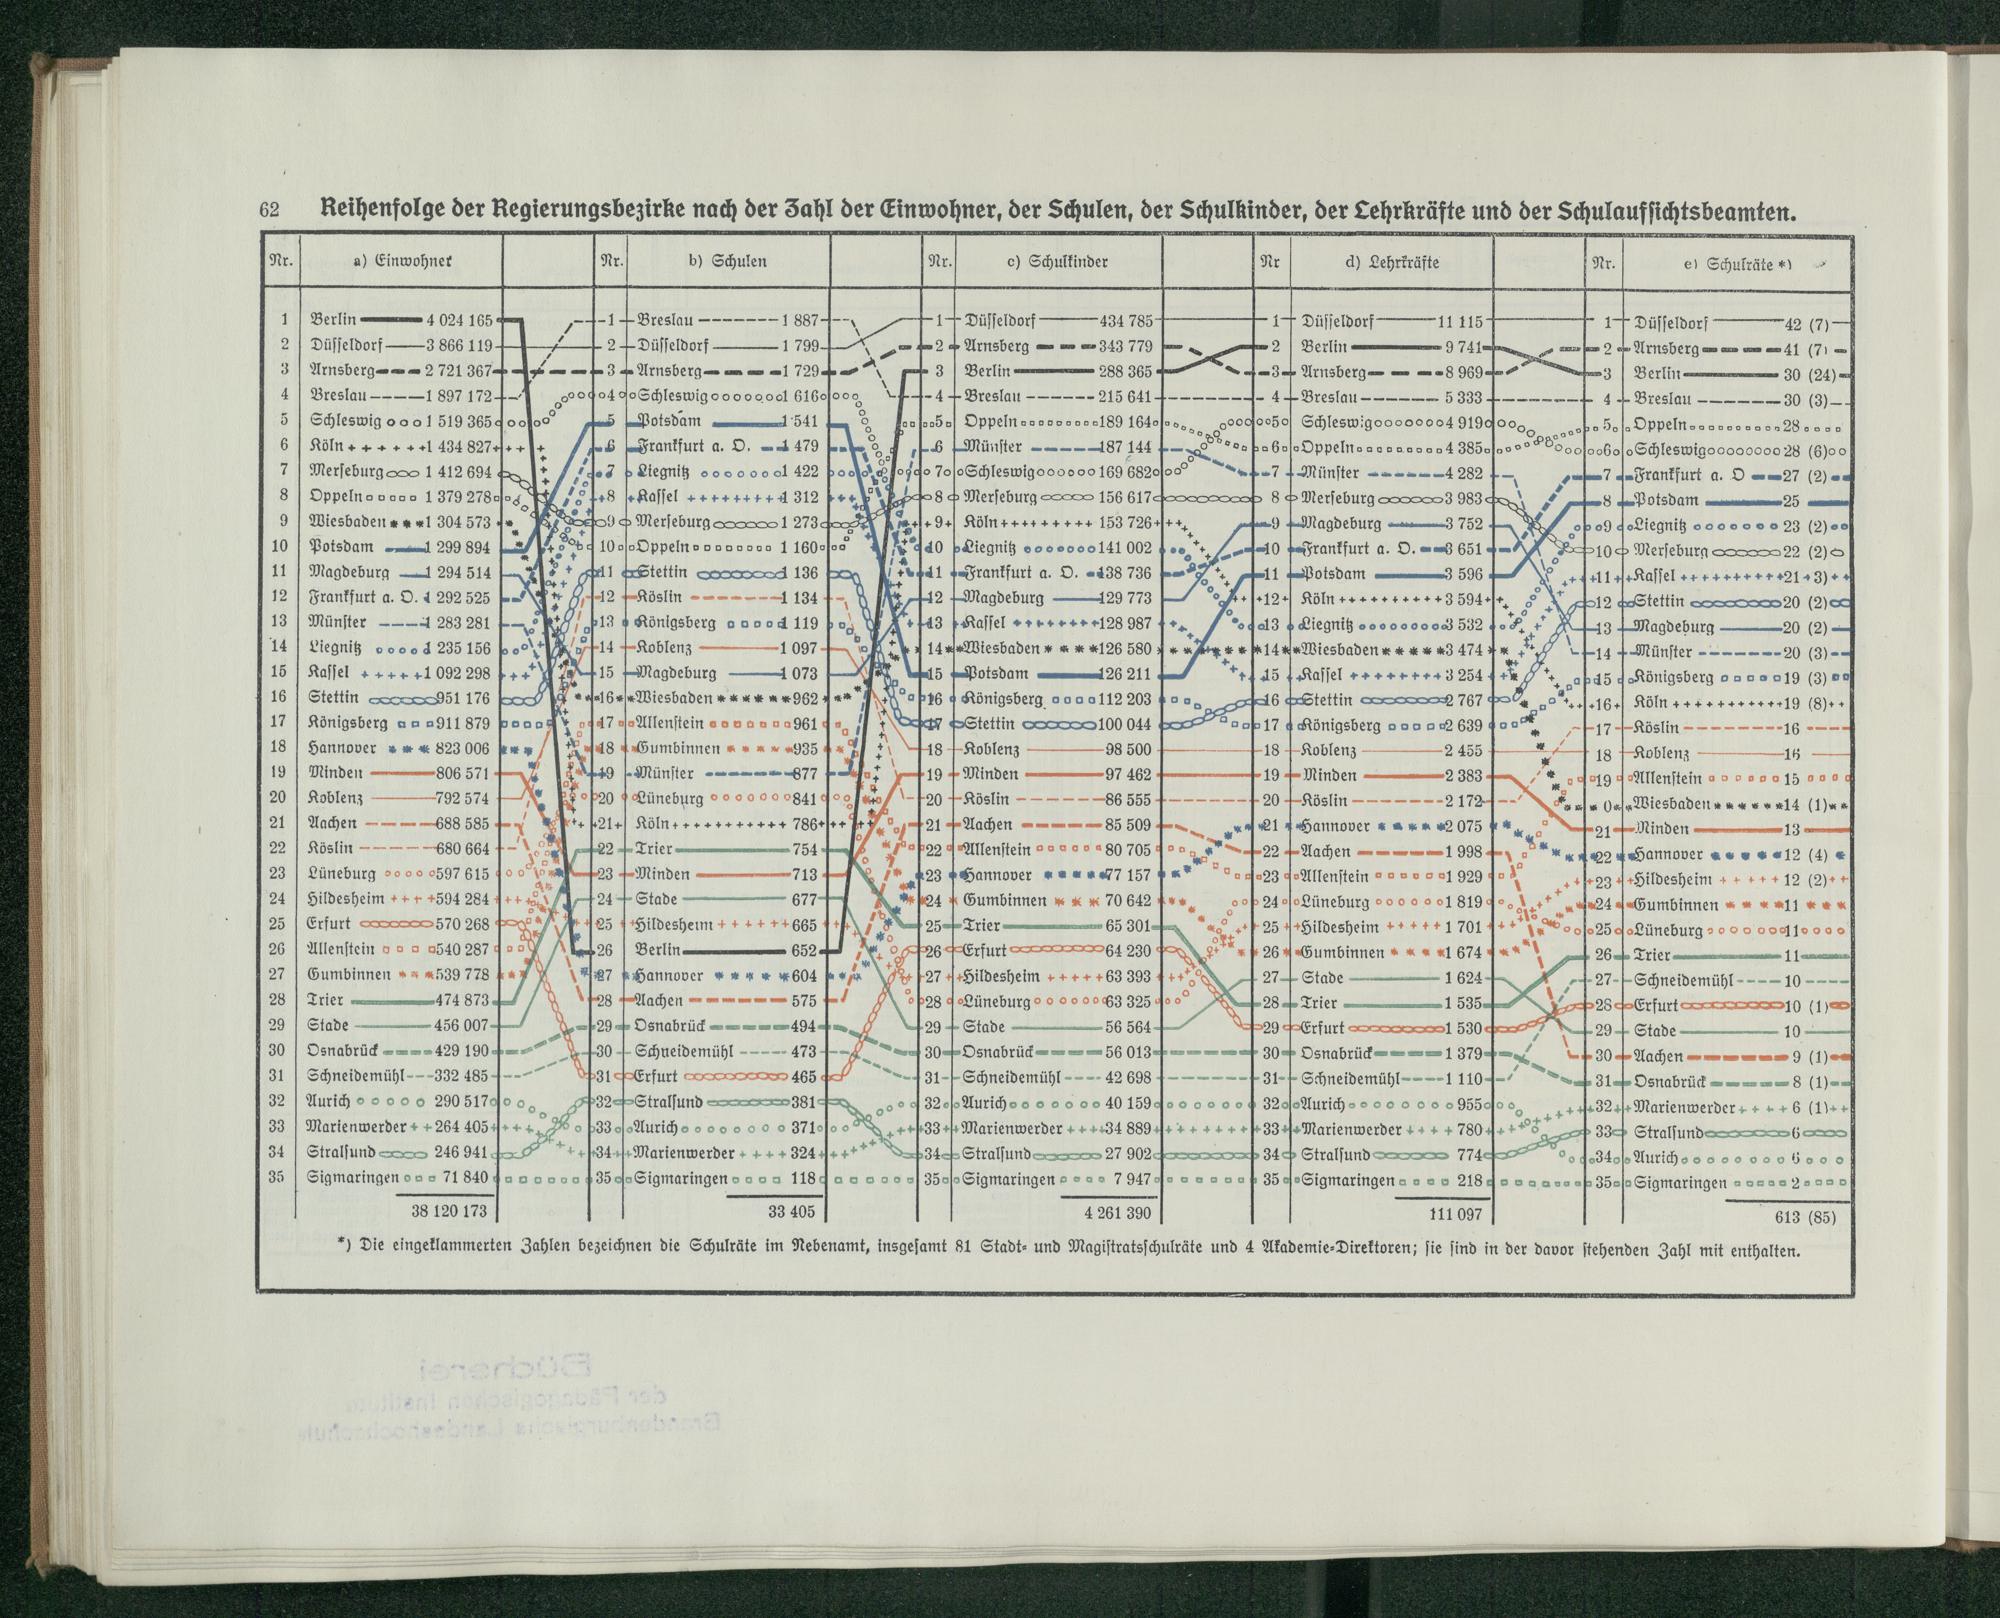 62 Reihenfolge der Regierungsbezirke nach der Zahl der Einwohner, der Schulen, der Schulkinder, der Lehrkräfte und der Schulaufsichtsbeamten.
Nr. a) Einwohner Nr. b) Schulen Nr. c) Schulkinder Nr d) Lehrkräfte Nr. e) Schulräte *)
1 Berlin 4 024 165 1 Breslau 1 887 1 Düsseldorf 434 785 1 Düsseldorf 11 115 1 Düsseldorf 42 (7)
2 Düsseldorf 3 866 119 2 Düsseldorf 1 799 2 Arnsberg 343 779 2 Berlin 9 741 2 Arnsberg 41 (7)
3 Arnsberg 2 721 367 3 Arnsberg 1 729 3 Berlin 288 365 3 Arnsberg 8 969 3 Berlin 30 (24)
4 Breslau 1 897 172 4 Schleswig 1 616 4 Breslau 215 641 4 Breslau 5 333 4 Breslau 30 (3)
5 Schleswig 1 519 365 5 Potsdam 1 541 5 Oppeln 189 164 5 Schleswig 4 919 5 Oppeln 28
6 Köln 1 434 827 6 Frankfurt a. O. 1 479 6 Münster 187 144 6 Oppeln 4 385 6 Schleswig 28 (6)
7 Merseburg 1 412 694 7 Liegnitz 1 422 7 Schleswig 169 682 7 Münster 4 282 7 Frankfurt a. O 27 (2)
8 Oppeln 1 379 278 8 Kassel 1 312 8 Merseburg 156 617 8 Merseburg 3 983 8 Potsdam 25
9 Wiesbaden 1 304 573 9 Merseburg 1 273 9 Köln 153 726 9 Magdeburg 3 752 9 Liegnitz 23 (2)
10 Potsdam 1 299 894 10 Oppeln 1 160 10 Liegnitz 141 002 10 Frankfurt a. O. 3 651 10 Merseburg 22 (2)
11 Magdeburg 1 294 514 11 Stettin 1 136 11 Frankfurt a. O. 138 736 11 Potsdam 3 596 11 Kassel 21 3)
12 Frankfurt a. O. 1 292 525 12 Köslin 1 134 12 Magdeburg 129 773 12 Köln 3 594 12 Stettin 20 (2)
13 Münster 1 283 281 13 Königsberg 1 119 13 Kassel 128 987 13 Liegnitz 3 532 13 Magdeburg 20 (2)
14 Liegnitz 1 235 156 14 Koblenz 1 097 14 Wiesbaden 126 580 14 Wiesbaden 3 474 14 Münster 20 (3)
15 Kassel 1 092 298 15 Magdeburg 1 073 15 Potsdam 126 211 15 Kassel 3 254 15 Königsberg 19 (3)
16 Stettin 951 176 16 Wiesbaden 962 16 Königsberg 112 203 16 Stettin 2 767 16 Köln 19 (8)
17 Königsberg 911 879 17 Allenstein 961 17 Stettin 100 044 17 Königsberg 2 639 17 Köslin 16
18 Hannover 823 006 18 Gumbinnen 935 18 Koblenz 98 500 18 Koblenz 2 455 18 Koblenz 16
19 Minden 806 571 19 Münster 877 19 Minden 97 462 19 Minden 2 383 19 Allenstein 15
20 Koblenz 792 574 20 Lüneburg 841 20 Köslin 86 555 20 Köslin 2 172 0 Wiesbaden 14 (1)
21 Aachen 688 585 21 Köln 786 21 Aachen 85 509 21 Hannover 2 075 21 Minden 13
22 Köslin 680 664 22 Trier 754 22 Allenstein 80 705 22 Aachen 1 998 22 Hannover 12 (4)
23 Lüneburg 597 615 23 Minden 713 23 Hannover 77 157 23 Allenstein 1 929 23 Hildesheim 12 (2)
24 Hildesheim 594 284 24 Stade 677 24 Gumbinnen 70 642 24 Lüneburg 1 819 24 Gumbinnen 11
25 Erfurt 570 268 25 Hildesheim 665 25 Trier 65 301 25 Hildesheim 1 701 25 Lüneburg 11
26 Allenstein 540 287 26 Berlin 652 26 Erfurt 64 230 26 Gumbinnen 1 674 26 Trier 11
27 Gumbinnen 539 778 27 Hannover 604 27 Hildesheim 63 393 27 Stade 1 624 27 Schneidemühl 10
28 Trier 474 873 28 Aachen 575 28 Lüneburg 63 325 28 Trier 1 535 28 Erfurt 10 (1)
29 Stade 456 007 29 Osnabrück 494 29 Stade 56 564 29 Erfurt 1 530 29 Stade 10
30 Osnabrück 429 190 30 Schneidemühl 473 30 Osnabrück 56 013 30 Osnabrück 1 379 30 Aachen 9 (1)
31 Schneidemühl 332 485 31 Erfurt 465 31 Schneidemühl 42 698 31 Schneidemühl 1 110 31 Osnabrück 8 (1)
32 Aurich 290 517 32 Stralsund 381 32 Aurich 40 159 32 Aurich 955 32 Marienwerder 6 (1)
33 Marienwerder 264 405 33 Aurich 371 33 Marienwerder 34 889 33 Marienwerder 780 33 Stralsund 6
34 Stralsund 246 941 34 Marienwerder 324 34 Stralsund 27 902 34 Stralsund 774 34 Aurich 6
35 Sigmaringen 71 840 35 Sigmaringen 118 35 Sigmaringen 7 947 35 Sigmaringen 218 35 Sigmaringen 2
38 120 173 33 405 4 261 390 111 097 613 (85)
*) Die eingeklammerten Zahlen bezeichnen die Schulräte im Nebenamt, insgesamt 81 Stadt- und Magistratsschulräte und 4 Akademie-Direktoren; sie sind in der davor stehenden Zahl mit enthalten.
Bücherei
der Pädagogischen Institute
Brandenburgische Landeshochschule